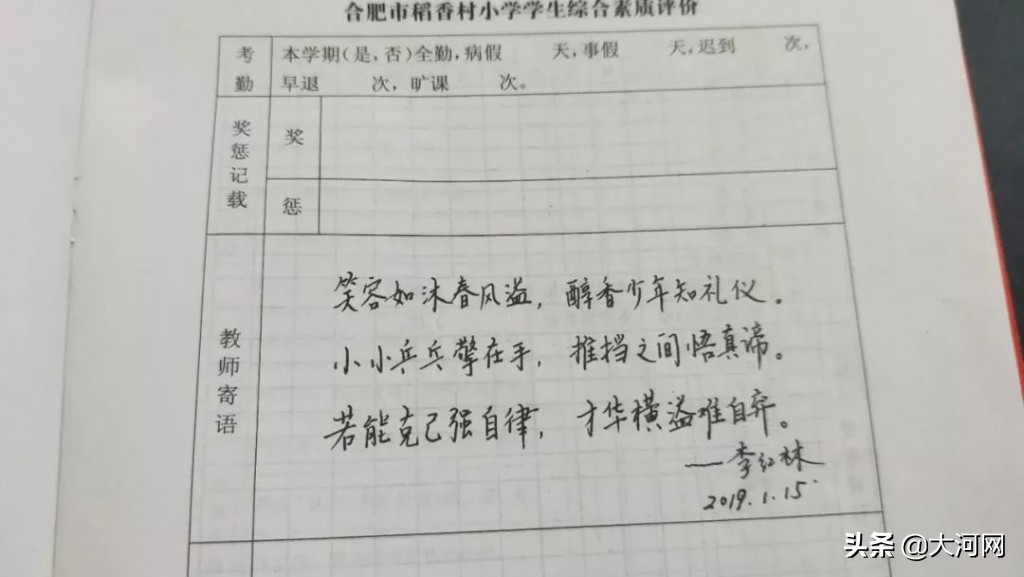 合肥市稻香村小学学生综合素质评价
考勤
本学期(是,否)全勤,病假 天,事假 天,迟到 次,
早退 次,旷课 次。
奖惩记载
奖
惩
教师寄语
笑容如沐春风溢,醇香少年知礼仪。
小小乒乓擎在手,推挡之间悟真谛。
若能克己强自律,才华横溢难自弃。
——李红林
2019.1.15
头条 @大河网